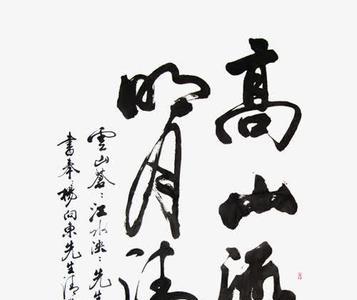 高山流
明月清
雲山蒼〻江水泱〻先生
書奉楊向東先生清